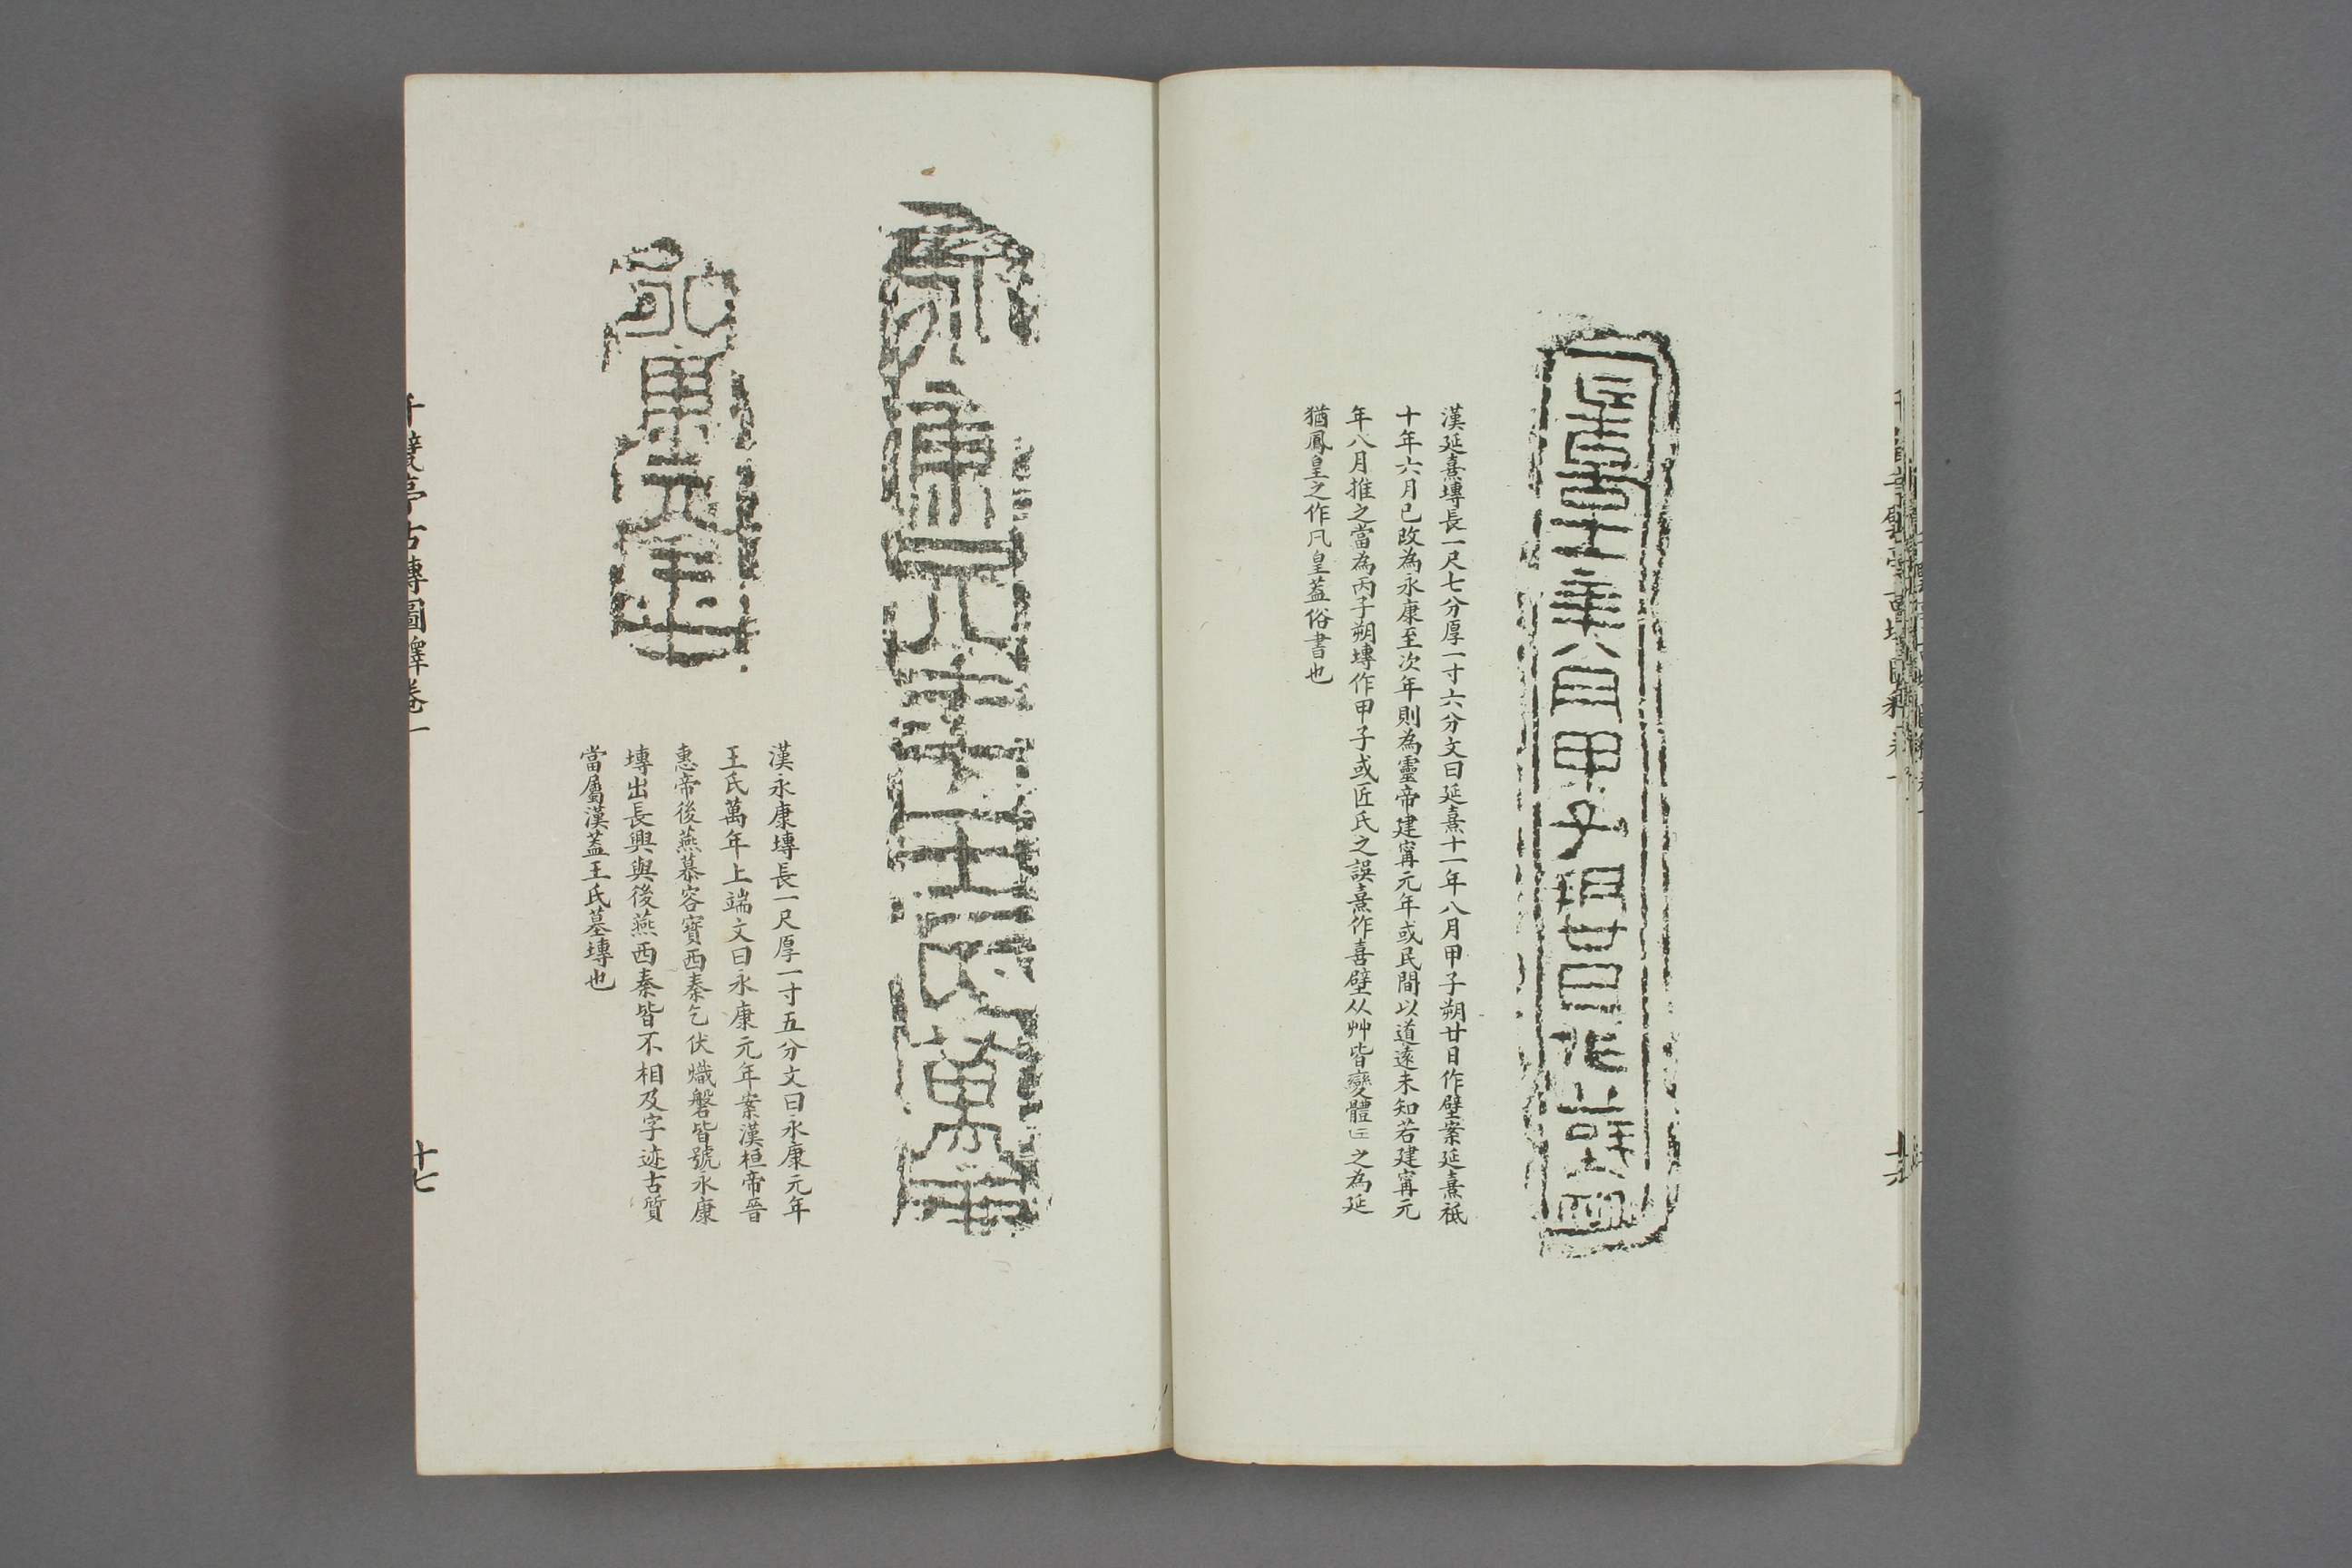 漢延熹塼長一尺七分厚一寸六分文曰延熹十一年八月甲子朔廿日作壁案延熹祗
十年六月已改為永康至次年則為靈帝建寗元年或民間以道遠未知若建寗元
年八月推之當為丙子朔塼作甲子或匠氏之誤熹作喜壁从艸皆變體之為延
猶鳳皇之作凡皇葢俗書也
永康元年王氏萬年
永康元年
漢永康塼長一尺厚一寸五分文曰永康元年
王氏萬年上端文曰永康元年案漢桓帝晉
惠帝後燕慕容寳西秦乞伏熾磐皆號永康
塼出長興與後燕西秦皆不相及字迹古質
當屬漢葢王氏墓塼也
千甓亭古塼圖釋卷一
十七